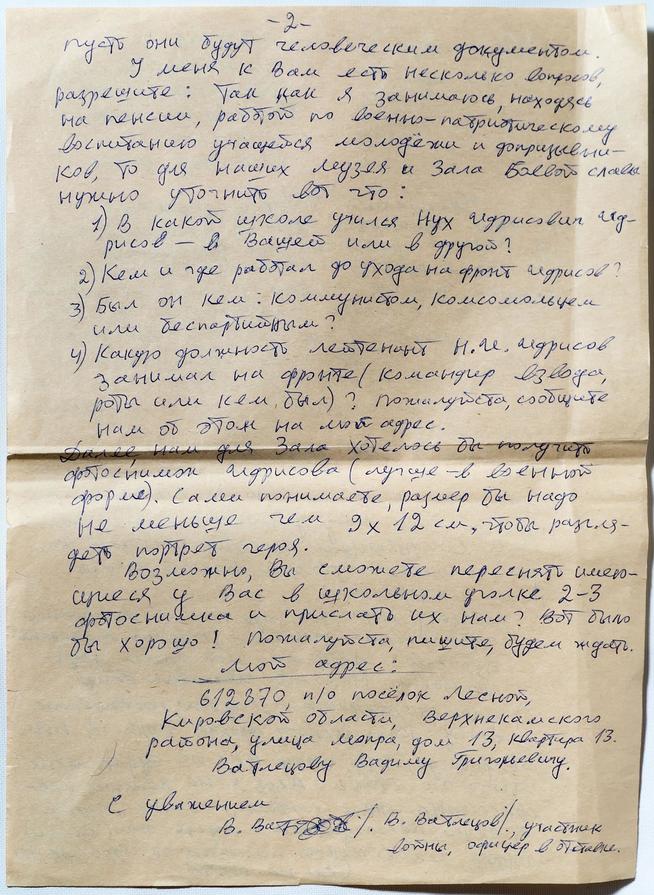 -2-
пусть они будут человеческим документом.
У меня к Вам есть несколько вопросов,
разрешите: Так как я занимаюсь, находясь
на пенсии, работой по военно-патриотическому
воспитанию учащейся молодёжи и допризывни-
ков, то для наших музея и Зала Боевой славы
нужно уточнить вот что:
1) В какой школе учился Нух Идрисович Ид-
рисов — в Вашей или в другой?
2) Кем и где работал до ухода на фронт Идрисов?
3) Был он кем: коммунистом, комсомольцем
или беспартийным?
4) Какую должность лейтенант Н.И. Идрисов
занимал на фронте (командир взвода,
роты или кем был)? Пожалуйста, сообщите
нам об этом на мой адрес.
Далее, нам для Зала хотелось бы получить
фотоснимок Идрисова (лучше - в военной
форме). Сами понимаете, размер бы надо
не меньше чем 9х12 см, чтобы разгля-
деть портрет героя.
Возможно, Вы сможете переснять имею-
щиеся у Вас в школьном уголке 2-3
фотоснимка и прислать их нам? Вот было
бы хорошо! Пожалуйста, пишите, будем ждать.
Мой адрес:
612870, п/о посёлок Лесной,
Кировской области, Верхнекамского
района, улица Мопра, дом 13, квартира 13.
Ватлецову Вадиму Григорьевичу.
С уважением
В. /В. Ватлецов/, участник
войны, офицер в отставке.